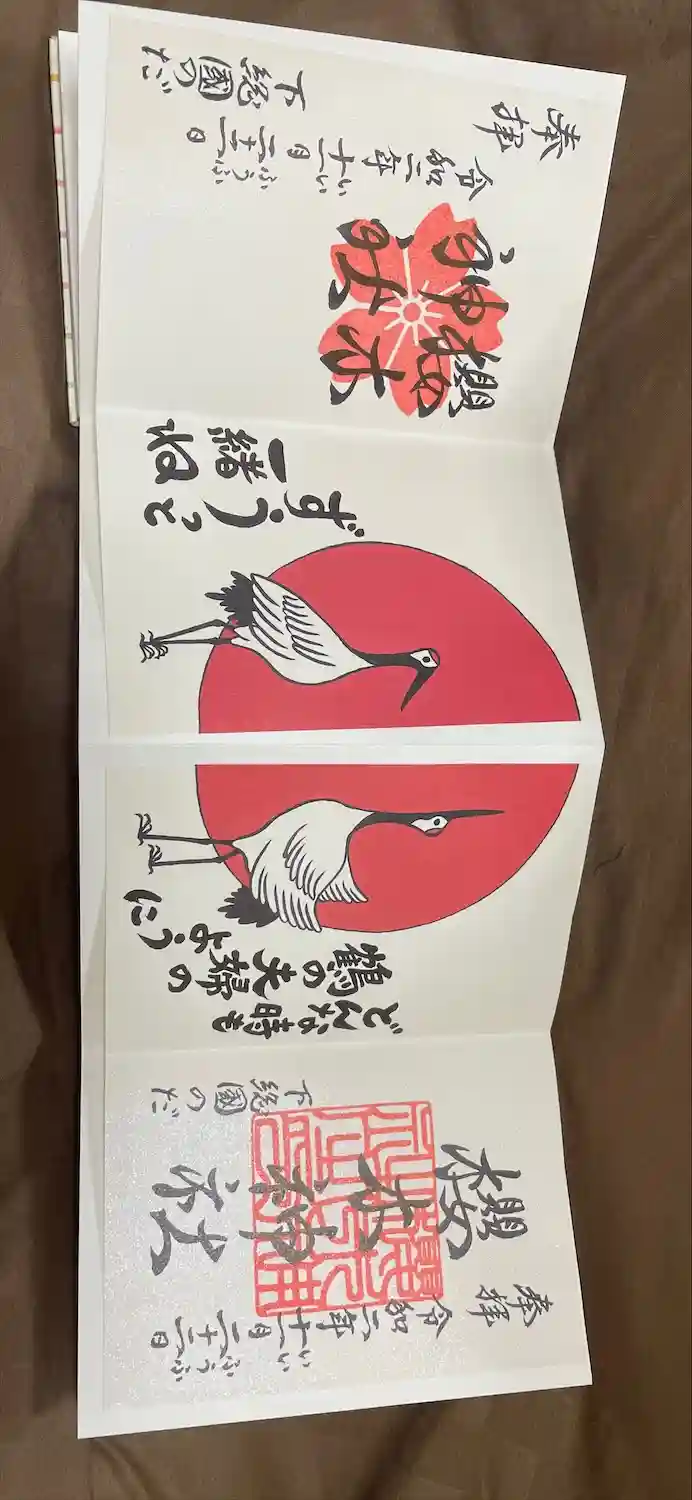 奉拝
令和二年十一月二十二日
いい ふうふ
櫻木神社
下総國のだ
どんな時も
鶴の夫婦の
ように
ずうっと
一緒ね
櫻木神社
奉拝
令和二年十一月二十二日
いい ふうふ
下総國のだ